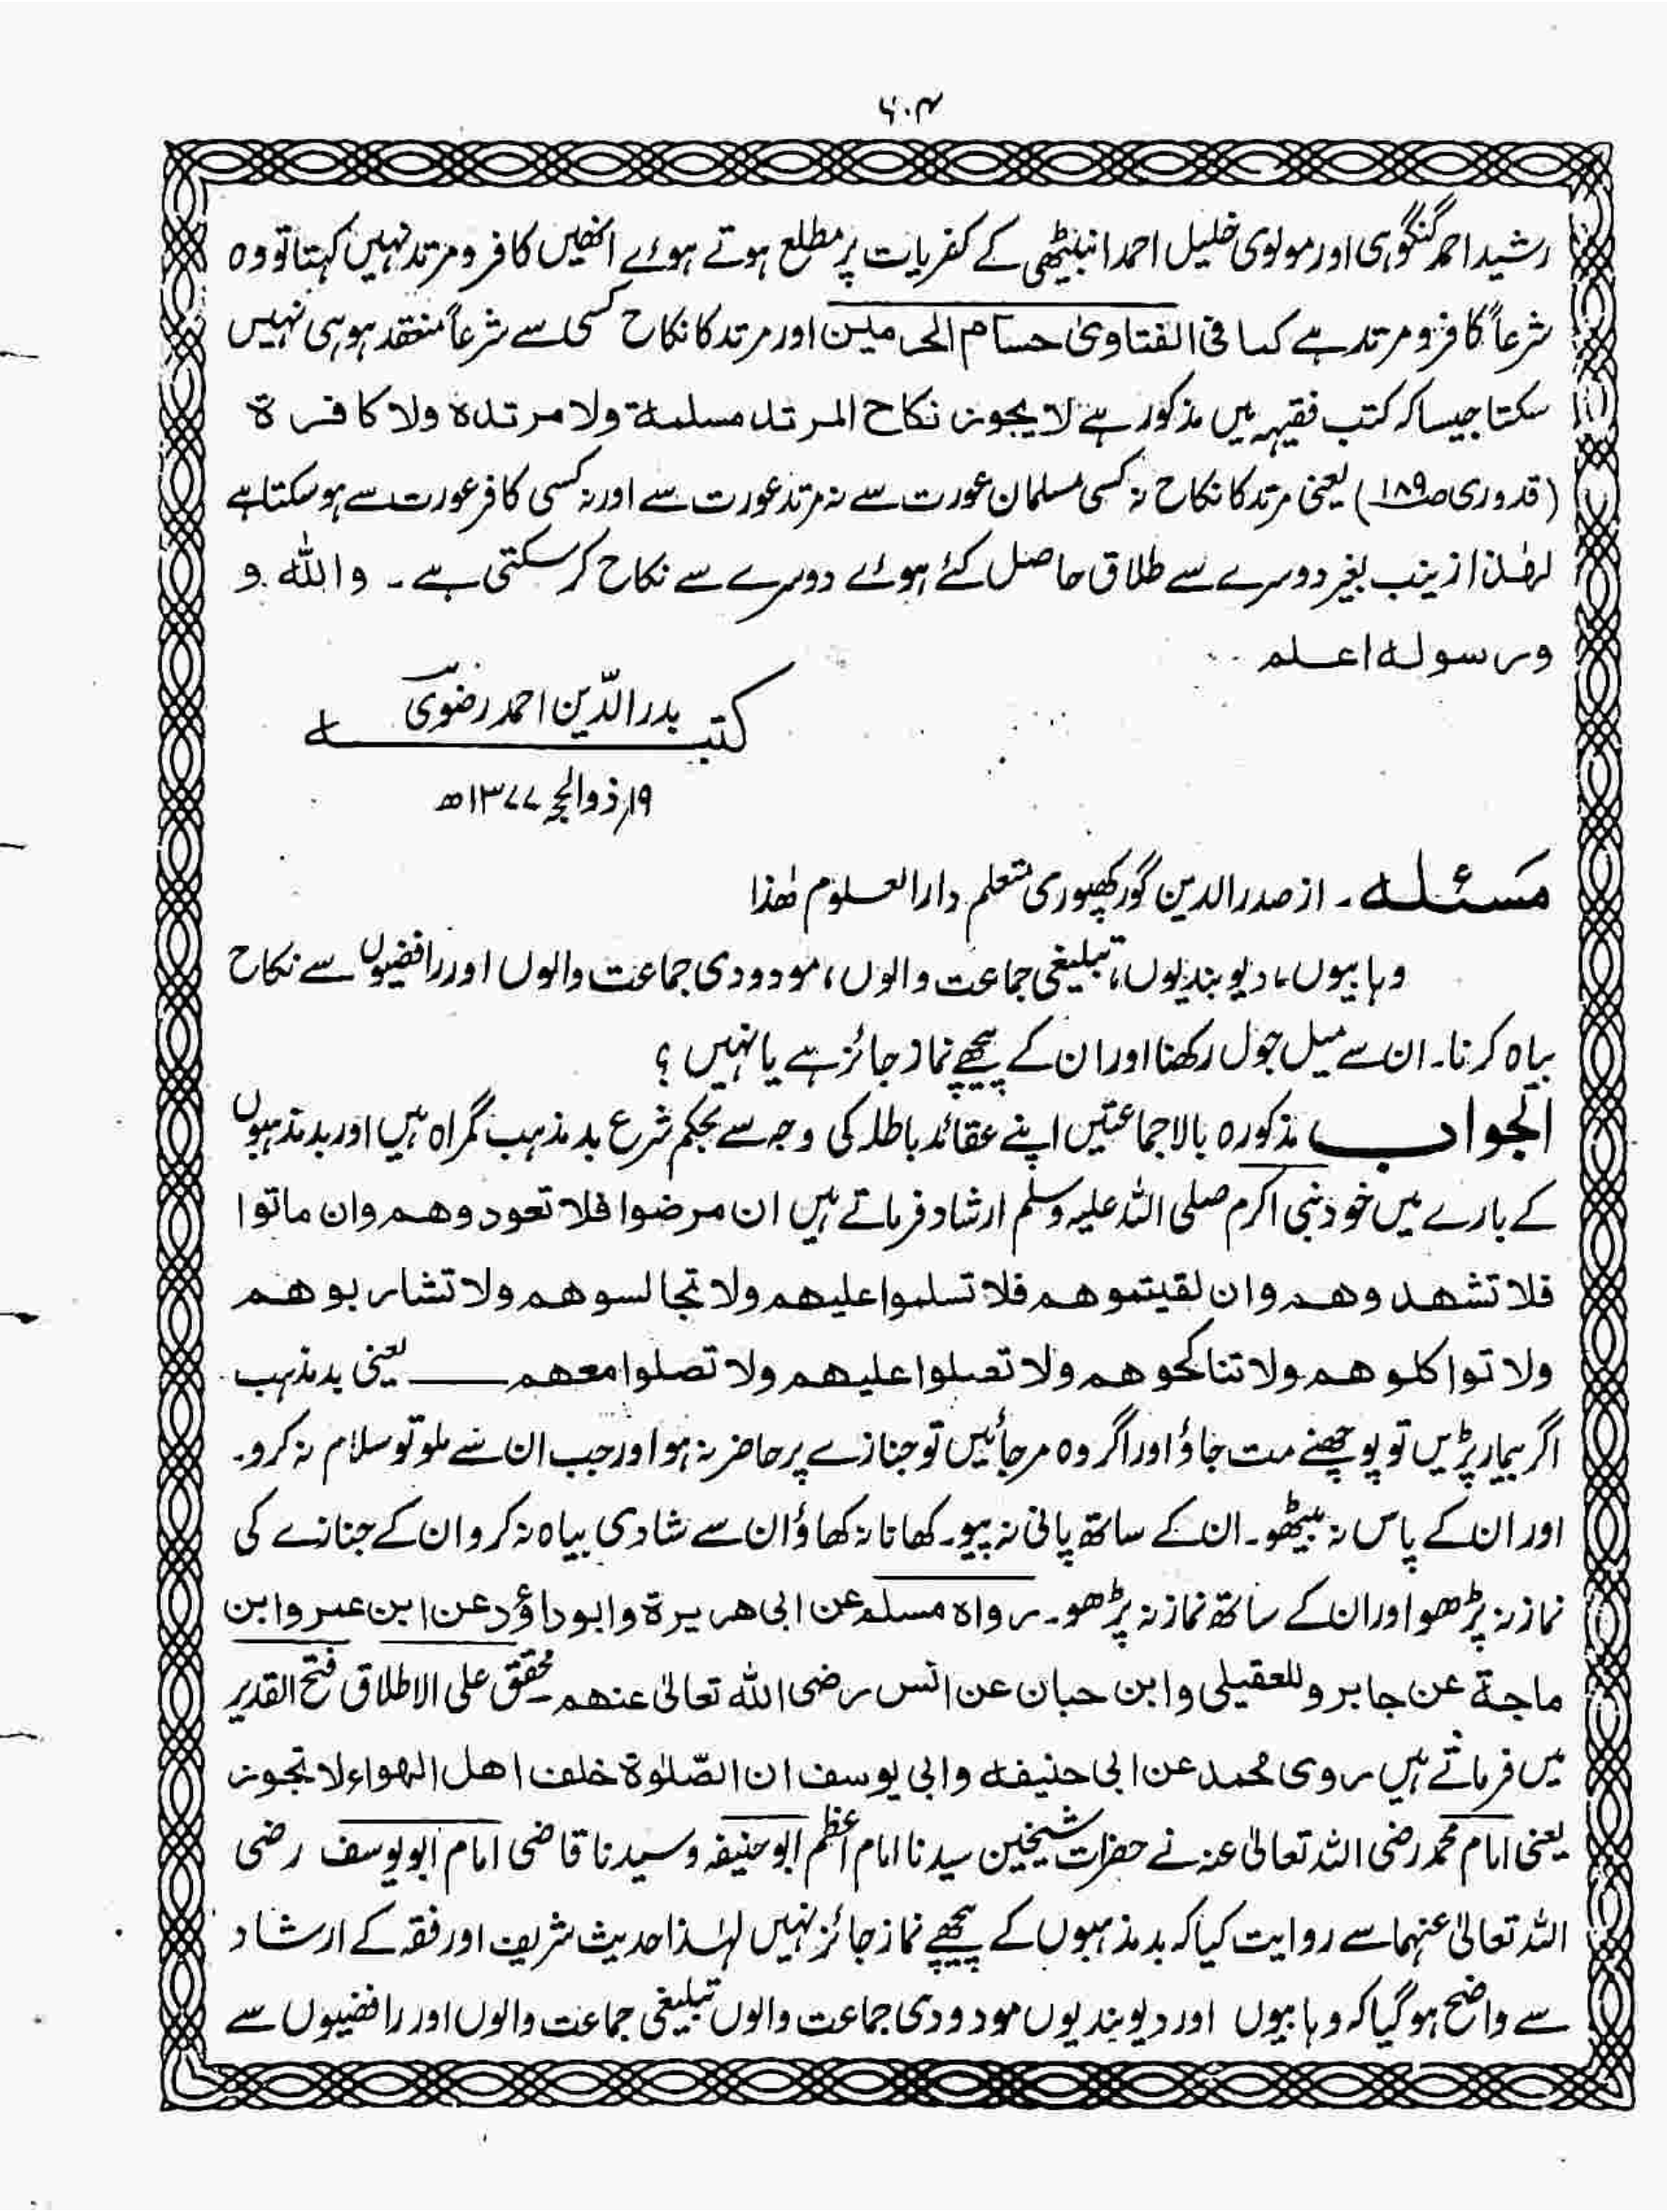 ۶۰۴
رشید احمد گنگوہی اور مولوی خلیل احمد انبیٹھی کے کفریات پر مطلع ہوتے ہوئے انھیں کافر و مرتد نہیں کہتا تو وہ
شرعاً کافر و مرتد ہے کما فی الفتاویٰ حسام الحرمین اور مرتد کا نکاح کسی سے شرعاً منعقد ہو ہی نہیں
سکتا جیسا کہ کتب فقہیہ میں مذکور ہے لا یجوز نکاح المرتد مسلمۃ ولا مرتدۃ ولا کافرۃ
(قدوری ص۱۸۹) یعنی مرتد کا نکاح نہ کسی مسلمان عورت سے نہ مرتد عورت سے اور نہ کسی کافر عورت سے ہو سکتا ہے
لھٰذا زینب بغیر دوسرے سے طلاق حاصل کئے ہوئے دوسرے سے نکاح کر سکتی ہے۔ واللہ و
ورسولہ اعلم
کتبہ بدر الدّین احمد رضوی
۱۹؍ ذوالحجہ ۱۳۷۷ھ
مسئلہ۔ از صدر الدین گورکھپوری متعلم دار العلوم ھٰذا
وہابیوں، دیوبندیوں، تبلیغی جماعت والوں، مودودی جماعت والوں اور رافضیوں سے نکاح
بیاہ کرنا۔ ان سے میل جول رکھنا اور ان کے پیچھے نماز جائز ہے یا نہیں ؟
الجواب مذکورہ بالا جماعتیں اپنے عقائد باطلہ کی وجہ سے بحکم شرع بد مذہب گمراہ ہیں اور بد مذہبوں
کے بارے میں خود نبی اکرم صلی اللہ علیہ وسلم ارشاد فرماتے ہیں ان مرضوا فلا تعودوھم وان ماتوا
فلا تشھدوھم وان لقیتموھم فلا تسلموا علیھم ولا تجالسوھم ولا تشاربوھم
ولا تواکلوھم ولا تناکحوھم ولا تصلوا علیھم ولا تصلوا معھم ـــــ یعنی بد مذہب
اگر بیمار پڑیں تو پوچھنے مت جاؤ اور اگر وہ مر جائیں تو جنازے پر حاضر نہ ہو اور جب ان سے ملو تو سلام نہ کرو۔
اور ان کے پاس نہ بیٹھو۔ ان کے ساتھ پانی نہ پیو۔ کھانا نہ کھاؤ ان سے شادی بیاہ نہ کرو ان کے جنازے کی
نماز نہ پڑھو اور ان کے ساتھ نماز نہ پڑھو۔ رواہ مسلم عن ابی ھریرۃ وابو داؤد عن ابن عمر وابن
ماجۃ عن جابر وللعقیلی وابن حبان عن انس رضی اللہ تعالیٰ عنھم۔ محقق علی الاطلاق فتح القدیر
میں فرماتے ہیں روی محمد عن ابی حنیفہ وابی یوسف ان الصّلوٰۃ خلف اھل الھواء لا تجوز
یعنی امام محمد رضی اللہ تعالیٰ عنہ نے حضرات شیخین سیدنا امام اعظم ابو حنیفہ و سیدنا قاضی امام ابو یوسف رضی
اللہ تعالیٰ عنہما سے روایت کیا کہ بد مذہبوں کے پیچھے نماز جائز نہیں لہٰذا حدیث شریف اور فقہ کے ارشاد
سے واضح ہو گیا کہ وہابیوں اور دیوبندیوں مودودی جماعت والوں تبلیغی جماعت والوں اور رافضیوں سے